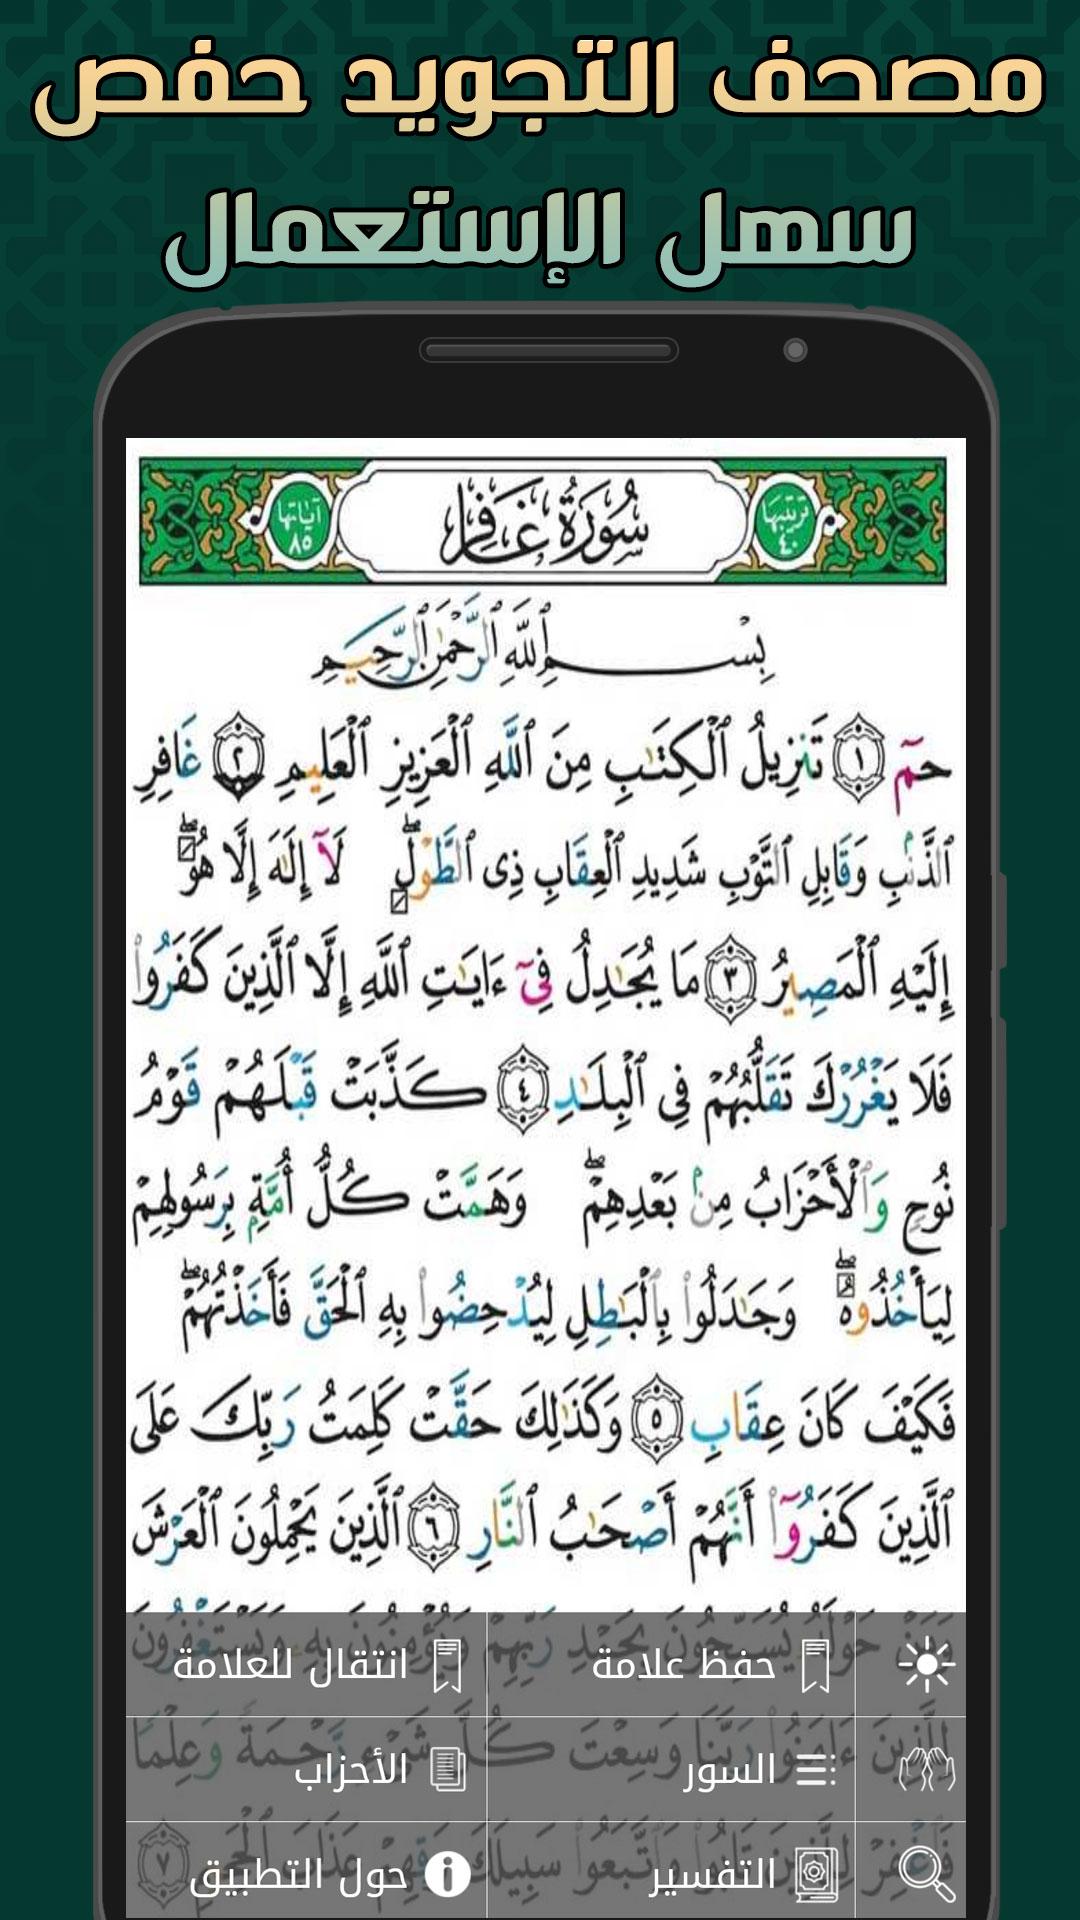 مصحف التجويد حفص
سهل الإستعمال
ترتيبها ٤٠ سُورَةُ غَافِرٍ آياتها ٨٥
بِسْمِ ٱللَّهِ ٱلرَّحْمَٰنِ ٱلرَّحِيمِ
حمٓ ١ تَنزِيلُ ٱلْكِتَٰبِ مِنَ ٱللَّهِ ٱلْعَزِيزِ ٱلْعَلِيمِ ٢ غَافِرِ
ٱلذَّنۢبِ وَقَابِلِ ٱلتَّوْبِ شَدِيدِ ٱلْعِقَابِ ذِى ٱلطَّوْلِۖ لَآ إِلَٰهَ إِلَّا هُوَۖ
إِلَيْهِ ٱلْمَصِيرُ ٣ مَا يُجَٰدِلُ فِىٓ ءَايَٰتِ ٱللَّهِ إِلَّا ٱلَّذِينَ كَفَرُوا۟
فَلَا يَغْرُرْكَ تَقَلُّبُهُمْ فِى ٱلْبِلَٰدِ ٤ كَذَّبَتْ قَبْلَهُمْ قَوْمُ
نُوحٍ وَٱلْأَحْزَابُ مِنۢ بَعْدِهِمْۖ وَهَمَّتْ كُلُّ أُمَّةٍۭ بِرَسُولِهِمْ
لِيَأْخُذُوهُۖ وَجَٰدَلُوا۟ بِٱلْبَٰطِلِ لِيُدْحِضُوا۟ بِهِ ٱلْحَقَّ فَأَخَذْتُهُمْۖ
فَكَيْفَ كَانَ عِقَابِ ٥ وَكَذَٰلِكَ حَقَّتْ كَلِمَتُ رَبِّكَ عَلَى
ٱلَّذِينَ كَفَرُوٓا۟ أَنَّهُمْ أَصْحَٰبُ ٱلنَّارِ ٦ ٱلَّذِينَ يَحْمِلُونَ ٱلْعَرْشَ
وَمَنْ حَوْلَهُۥ يُسَبِّحُونَ بِحَمْدِ رَبِّهِمْ وَيُؤْمِنُونَ بِهِۦ وَيَسْتَغْفِرُونَ
حفظ علامة انتقال للعلامة
لِلَّذِينَ ءَامَنُوا۟ رَبَّنَا وَسِعْتَ كُلَّ شَىْءٍ رَّحْمَةً وَعِلْمًا
السور الأحزاب
فَٱغْفِرْ لِلَّذِينَ تَابُوا۟ وَٱتَّبَعُوا۟ سَبِيلَكَ وَقِهِمْ عَذَابَ ٱلْجَحِيمِ ٧
التفسير حول التطبيق